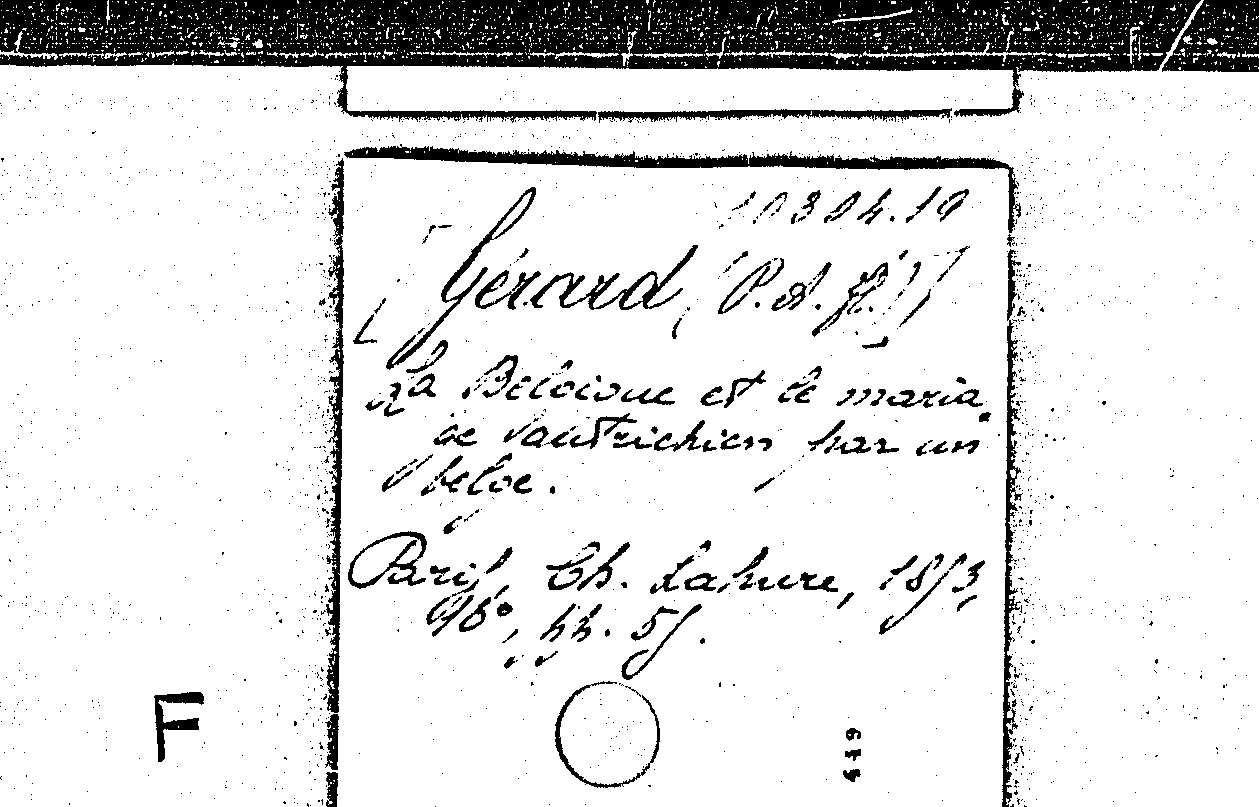 10304.19
[Gérard (P.A.F.)]
La Belgique et le maria-
ge l'autrichien par un
belge.
Paris, Ch. Lahure, 1853,
16°, pp. 55.
F